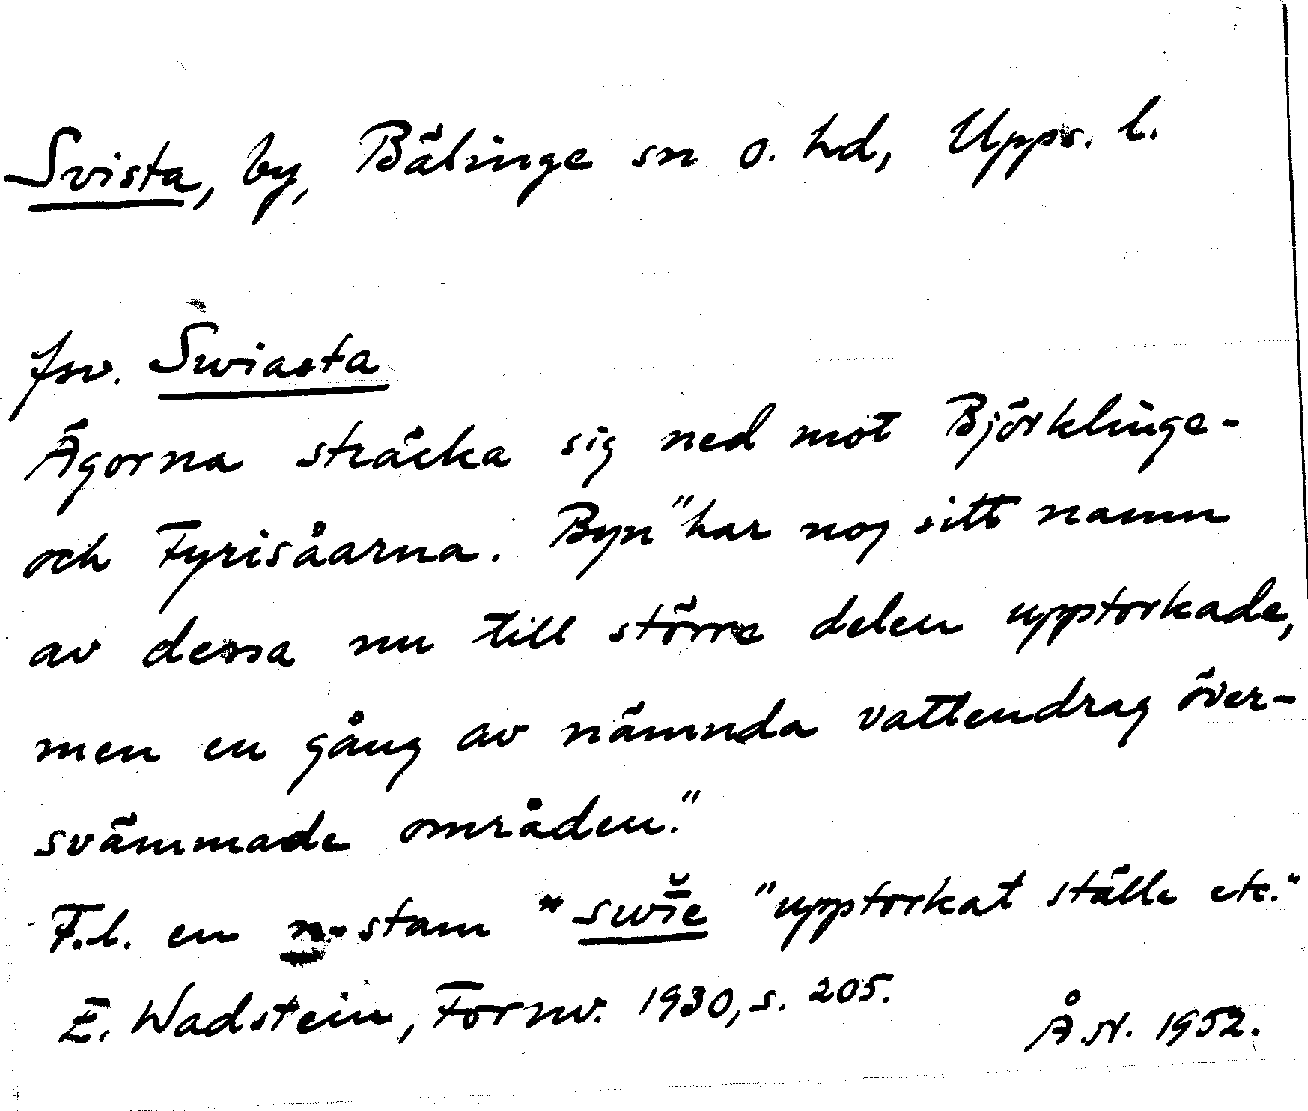 Svista, by, Bälinge sn o. hd, Upps. l.
fsv. Swiasta
Ägorna sträcka sig ned mot Björklinge-
och Fyrisåarna. Byn "har nog sitt namn
av dessa nu till större delen upptorkade,
men en gång av nämnda vattendrag över-
svämmade områden."
F.l. en n-stam *swĭ̄e "upptorkat ställe etc."
E. Wadstein, Fornv. 1930, s. 205.
Å.N. 1952.